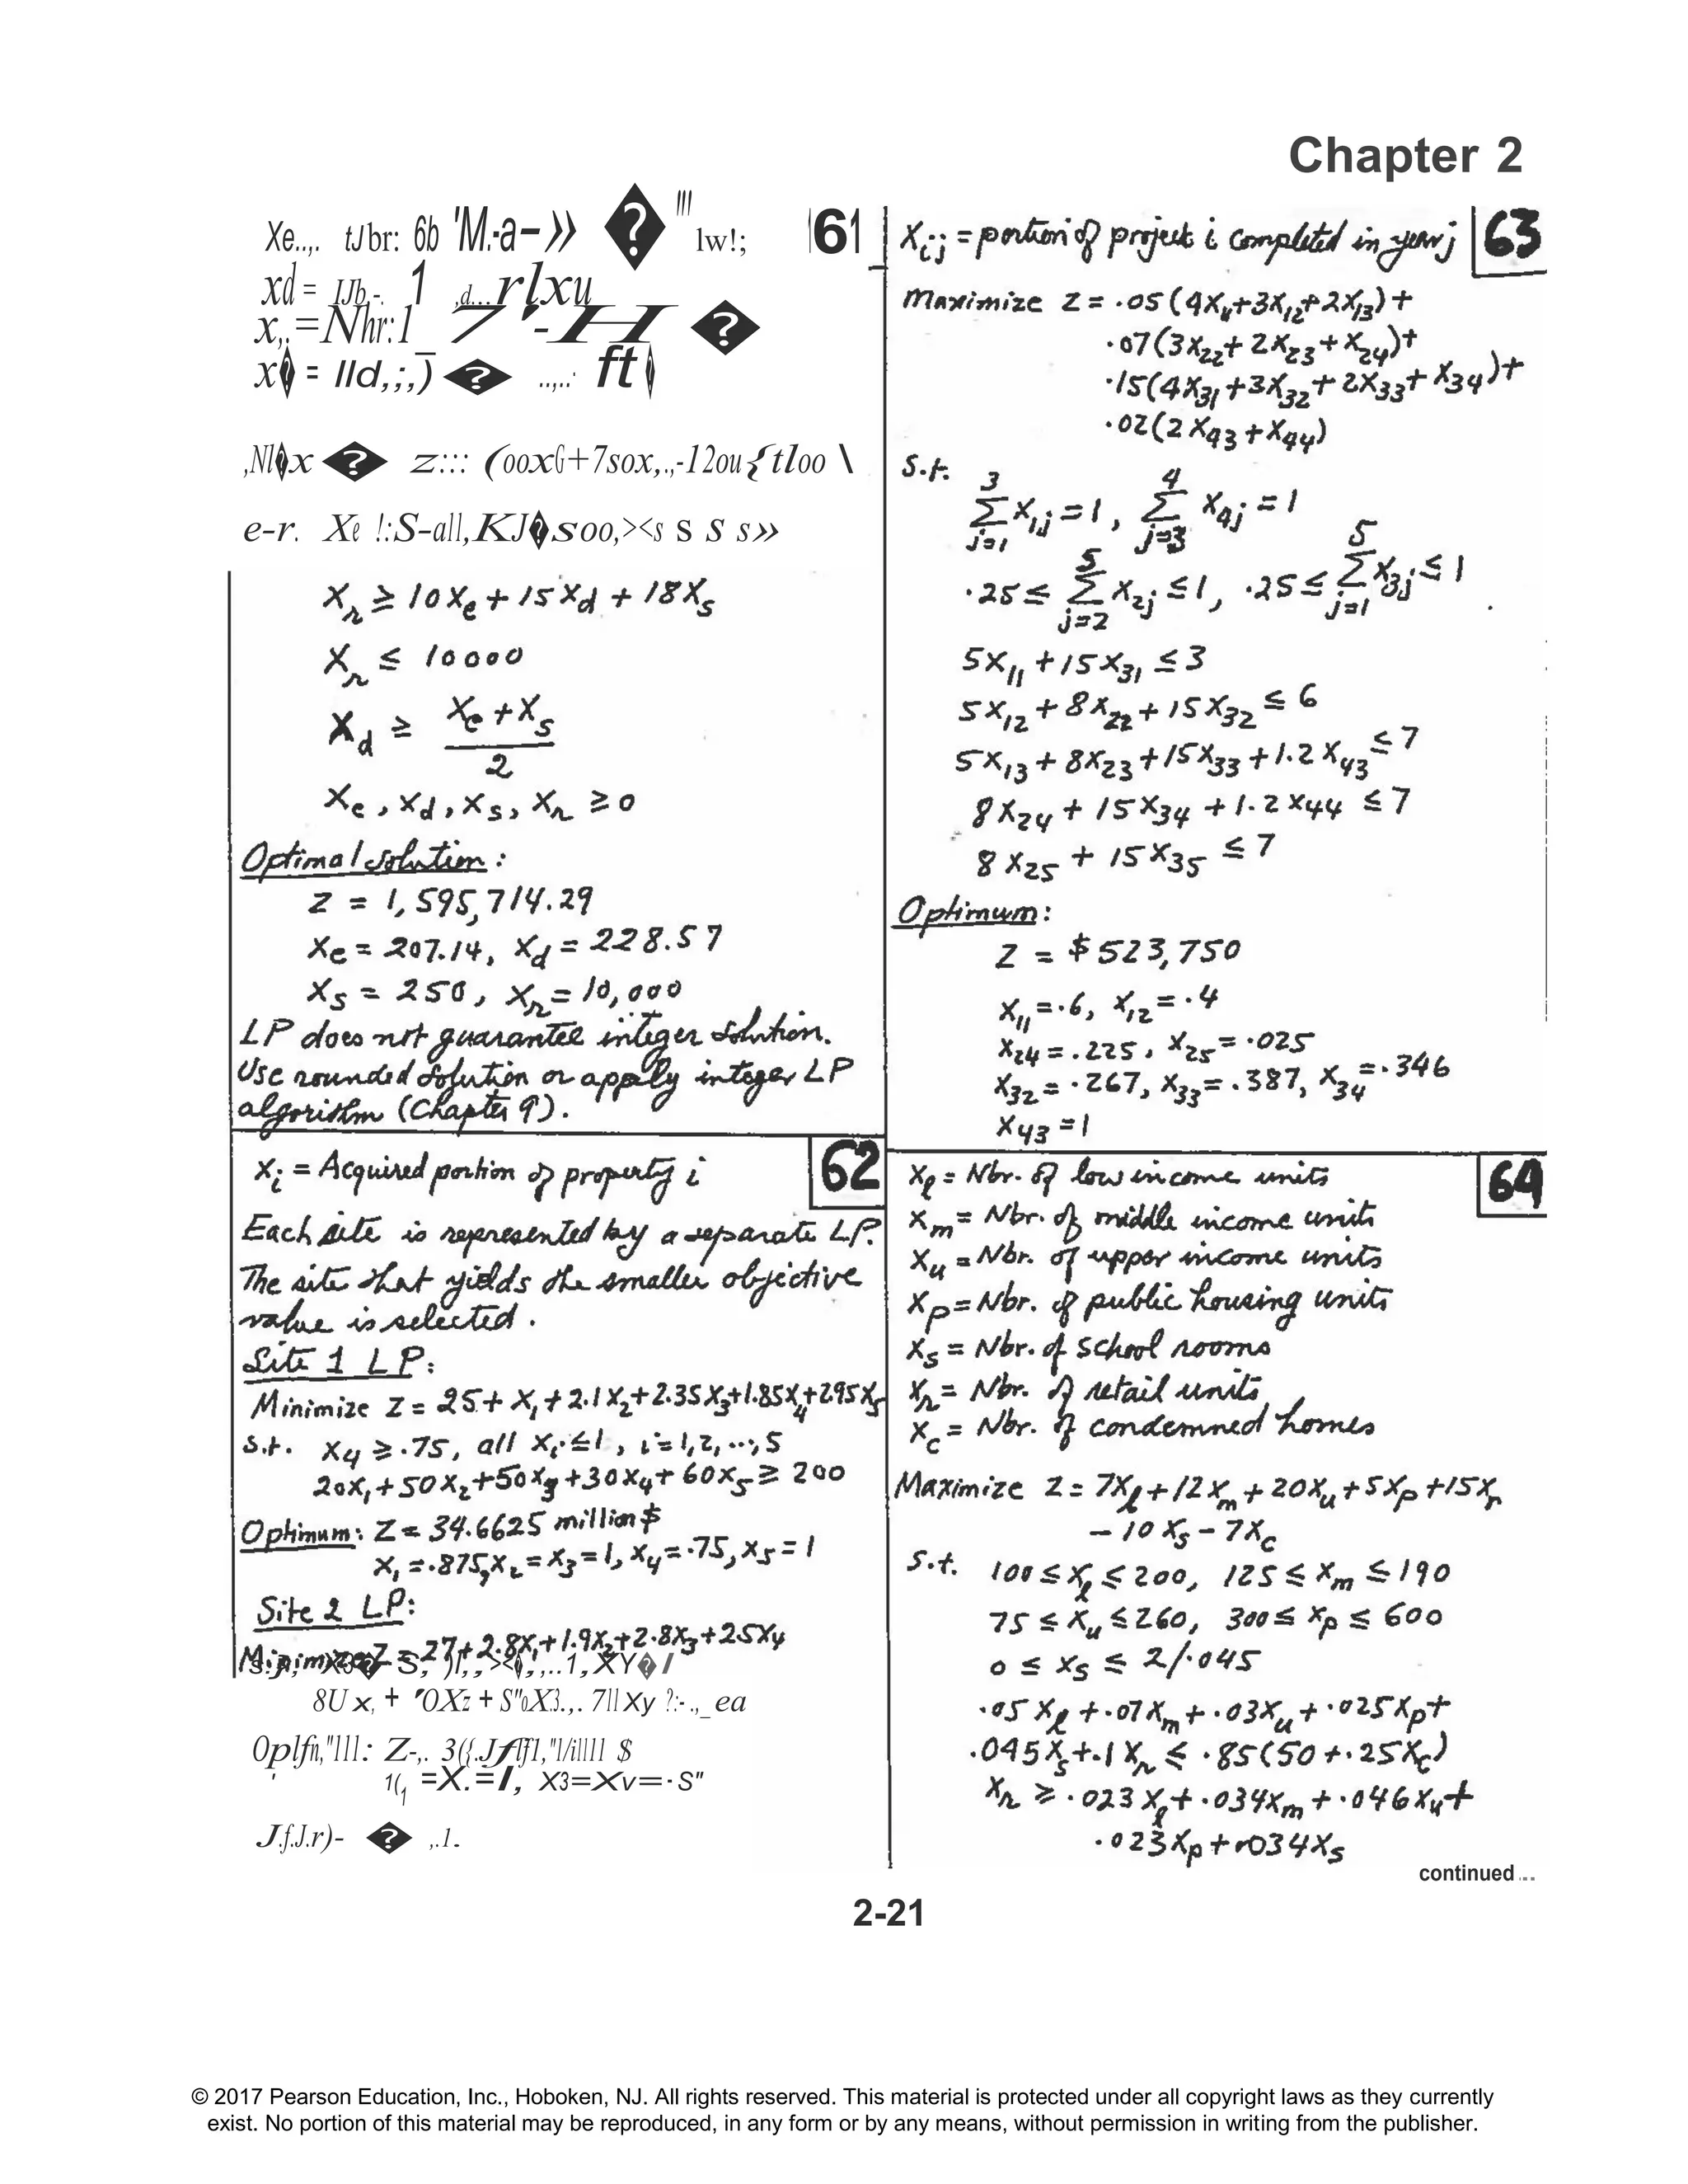 Chapter 2
61
X_r ≥ 10X_e + 15X_d + 18X_s
X_r ≤ 10000
X_d ≥ (X_e + X_s)/2
X_e, X_d, X_s, X_r ≥ 0
Optimal solution:
Z = 1,595,714.29
X_e = 207.14, X_d = 228.57
X_s = 250, X_r = 10,000
LP does not guarantee integer solution.
Use rounded solution or apply integer LP
algorithm (Chapter 9).
62
X_i = Acquired portion of property i
Each site is represented by a separate LP.
The site that yields the smaller objective
value is selected.
Site 1 LP:
Minimize Z = 25 + X_1 + 2.1X_2 + 2.35X_3 + 1.85X_4 + 2.95X_5
s.t. X_4 ≥ .75, all X_i ≤ 1, i = 1, 2, ..., 5
20X_1 + 50X_2 + 50X_3 + 30X_4 + 60X_5 ≥ 200
Optimum: Z = 34.6625 million $
X_1 = .875, X_2 = X_3 = 1, X_4 = .75, X_5 = 1
Site 2 LP:
Minimize Z = 27 + 2.8X_1 + 1.9X_2 + 2.8X_3 + 2.5X_4
63
X_ij = portion of project i completed in year j
Maximize Z = .05(4X_11 + 3X_12 + 2X_13) +
.07(3X_22 + 2X_23 + X_24) +
.15(4X_31 + 3X_32 + 2X_33 + X_34) +
.02(2X_43 + X_44)
s.t.
∑_{j=1}^{3} X_1j = 1, ∑_{j=3}^{4} X_4j = 1
.25 ≤ ∑_{j=2}^{5} X_2j ≤ 1, .25 ≤ ∑_{j=1}^{5} X_3j ≤ 1
5X_11 + 15X_31 ≤ 3
5X_12 + 8X_22 + 15X_32 ≤ 6
5X_13 + 8X_23 + 15X_33 + 1.2X_43 ≤ 7
8X_24 + 15X_34 + 1.2X_44 ≤ 7
8X_25 + 15X_35 ≤ 7
Optimum:
Z = $523,750
X_11 = .6, X_12 = .4
X_24 = .225, X_25 = .025
X_32 = .267, X_33 = .387, X_34 = .346
X_43 = 1
64
X_l = Nbr. of low income units
X_m = Nbr. of middle income units
X_u = Nbr. of upper income units
X_p = Nbr. of public housing units
X_s = Nbr. of school rooms
X_r = Nbr. of retail units
X_c = Nbr. of condemned homes
Maximize Z = 7X_l + 12X_m + 20X_u + 5X_p + 15X_r
- 10X_s - 7X_c
s.t. 100 ≤ X_l ≤ 200, 125 ≤ X_m ≤ 190
75 ≤ X_u ≤ 260, 300 ≤ X_p ≤ 600
0 ≤ X_s ≤ 2/.045
.05X_l + .07X_m + .03X_u + .025X_p +
.045X_s + .1X_r ≤ .85(50 + .25X_c)
X_r ≥ .023X_l + .034X_m + .046X_u +
.023X_p + .034X_s
continued ...
2-21
© 2017 Pearson Education, Inc., Hoboken, NJ. All rights reserved. This material is protected under all copyright laws as they currently
exist. No portion of this material may be reproduced, in any form or by any means, without permission in writing from the publisher.